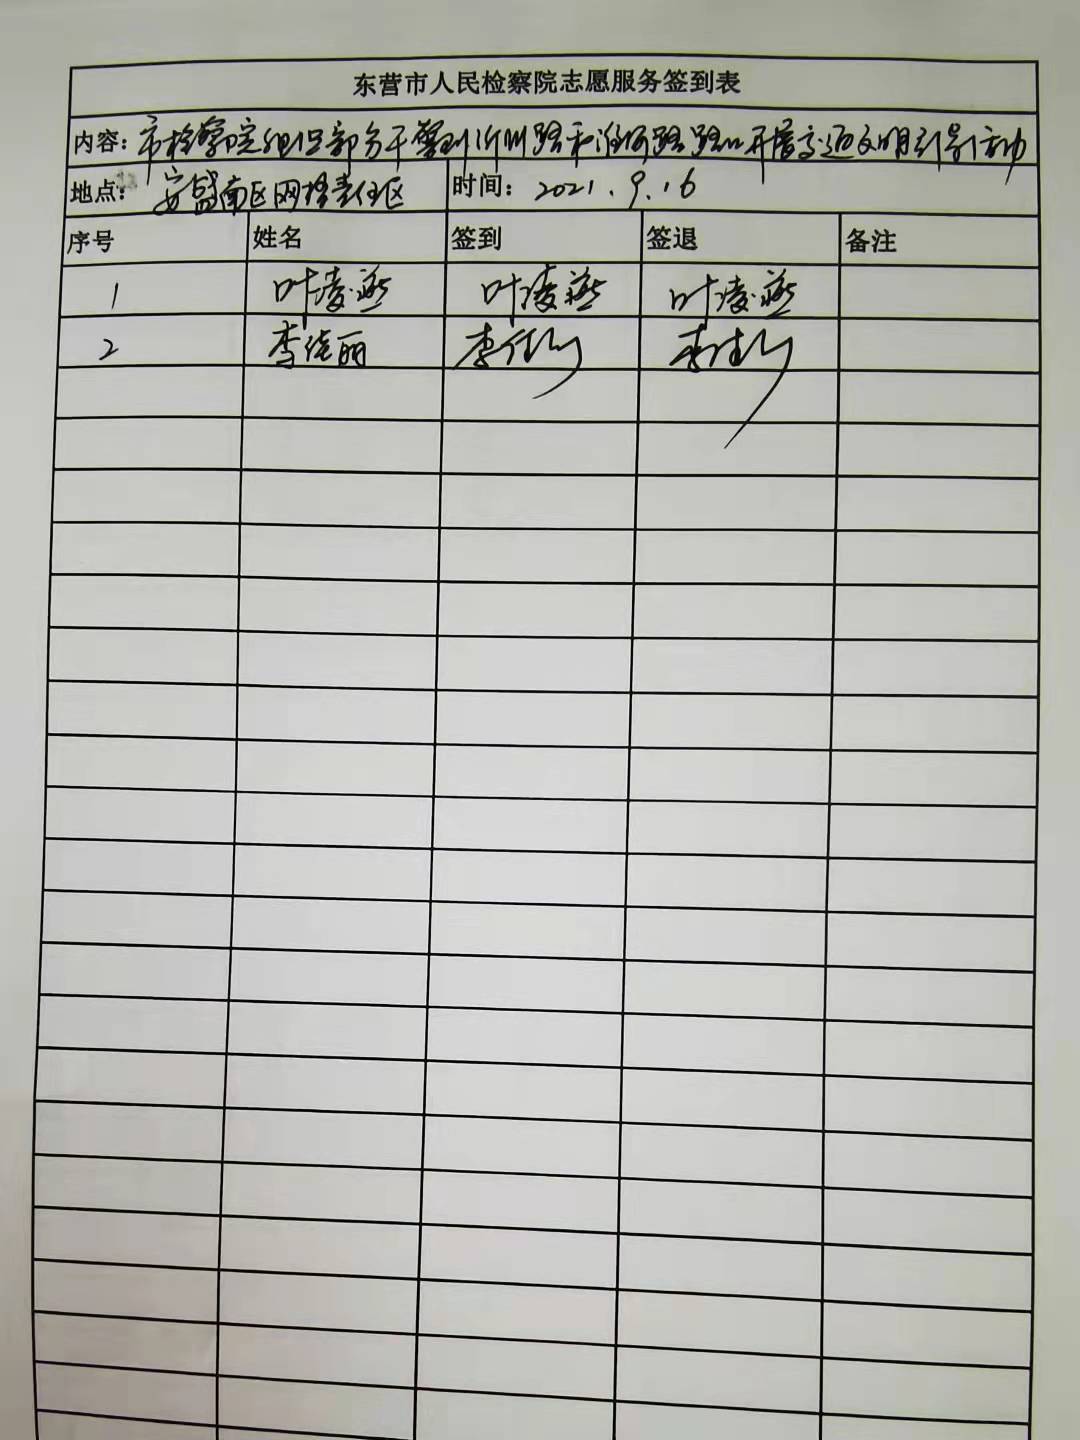 东营市人民检察院志愿服务签到表
内容：市检察院组织部分干警到沂州路和淮河路路口开展交通文明引导活动
地点：安盛南区网格责任区 时间：2021.9.16
序号 姓名 签到 签退 备注
1 叶凌燕 叶凌燕 叶凌燕
2 李绕丽